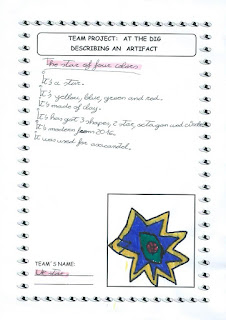 TEAM PROJECT: AT THE DIG
DESCRIBING AN ARTIFACT
The star of four colors
It's a star.
It's yellow, blue, green and red.
It's made of clay.
It's has got 3 shapes, 2 star, octagon and
It's modern from
It was used for
TEAM'S NAME: